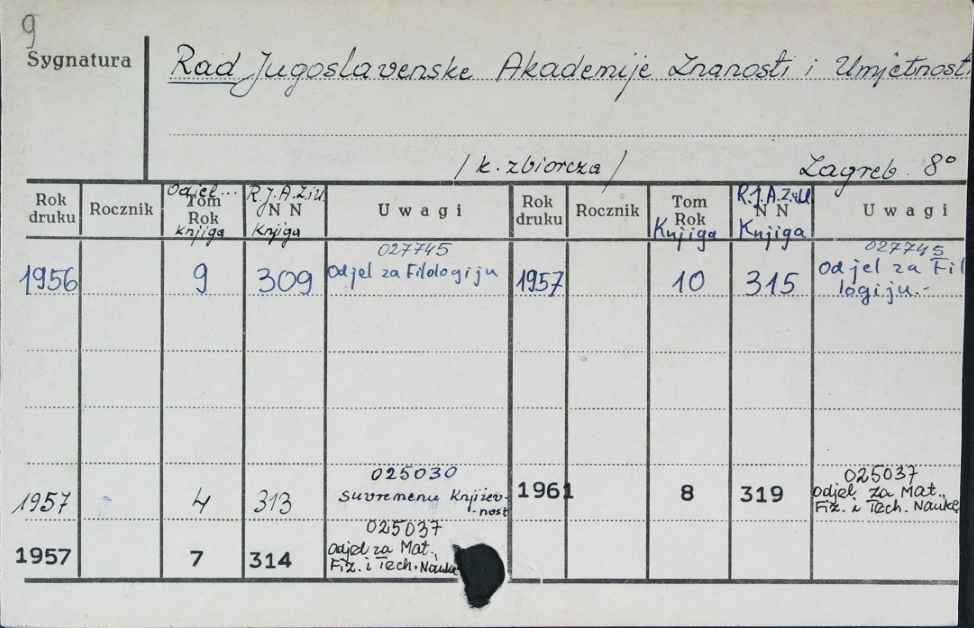 9
Sygnatura
Rad Jugoslavenske Akademije Znanosti i Umjetnosti
/ k. zbiorcza /
Zagreb. 8°
Rok druku
Rocznik
Odjel...
Tom
Rok
Knjiga
R.J.A.Z.i.U
N N
Knjiga
Uwagi
Rok druku
Rocznik
Tom
Rok
Knjiga
R.J.A.Z.i.U
N N
Knjiga
Uwagi
1956 9 309 027745
Odjel za Filologiju
1957 10 315 027745
Odjel za Fil
logiju.-
1957 4 313 025030
Suvremenu Književ-
-nost
1961 8 319 025037
Odjel za Mat.,
Fiz. i Tech. Nauke
1957 7 314 025037
Odjel za Mat.,
Fiz. i Tech. Nauke